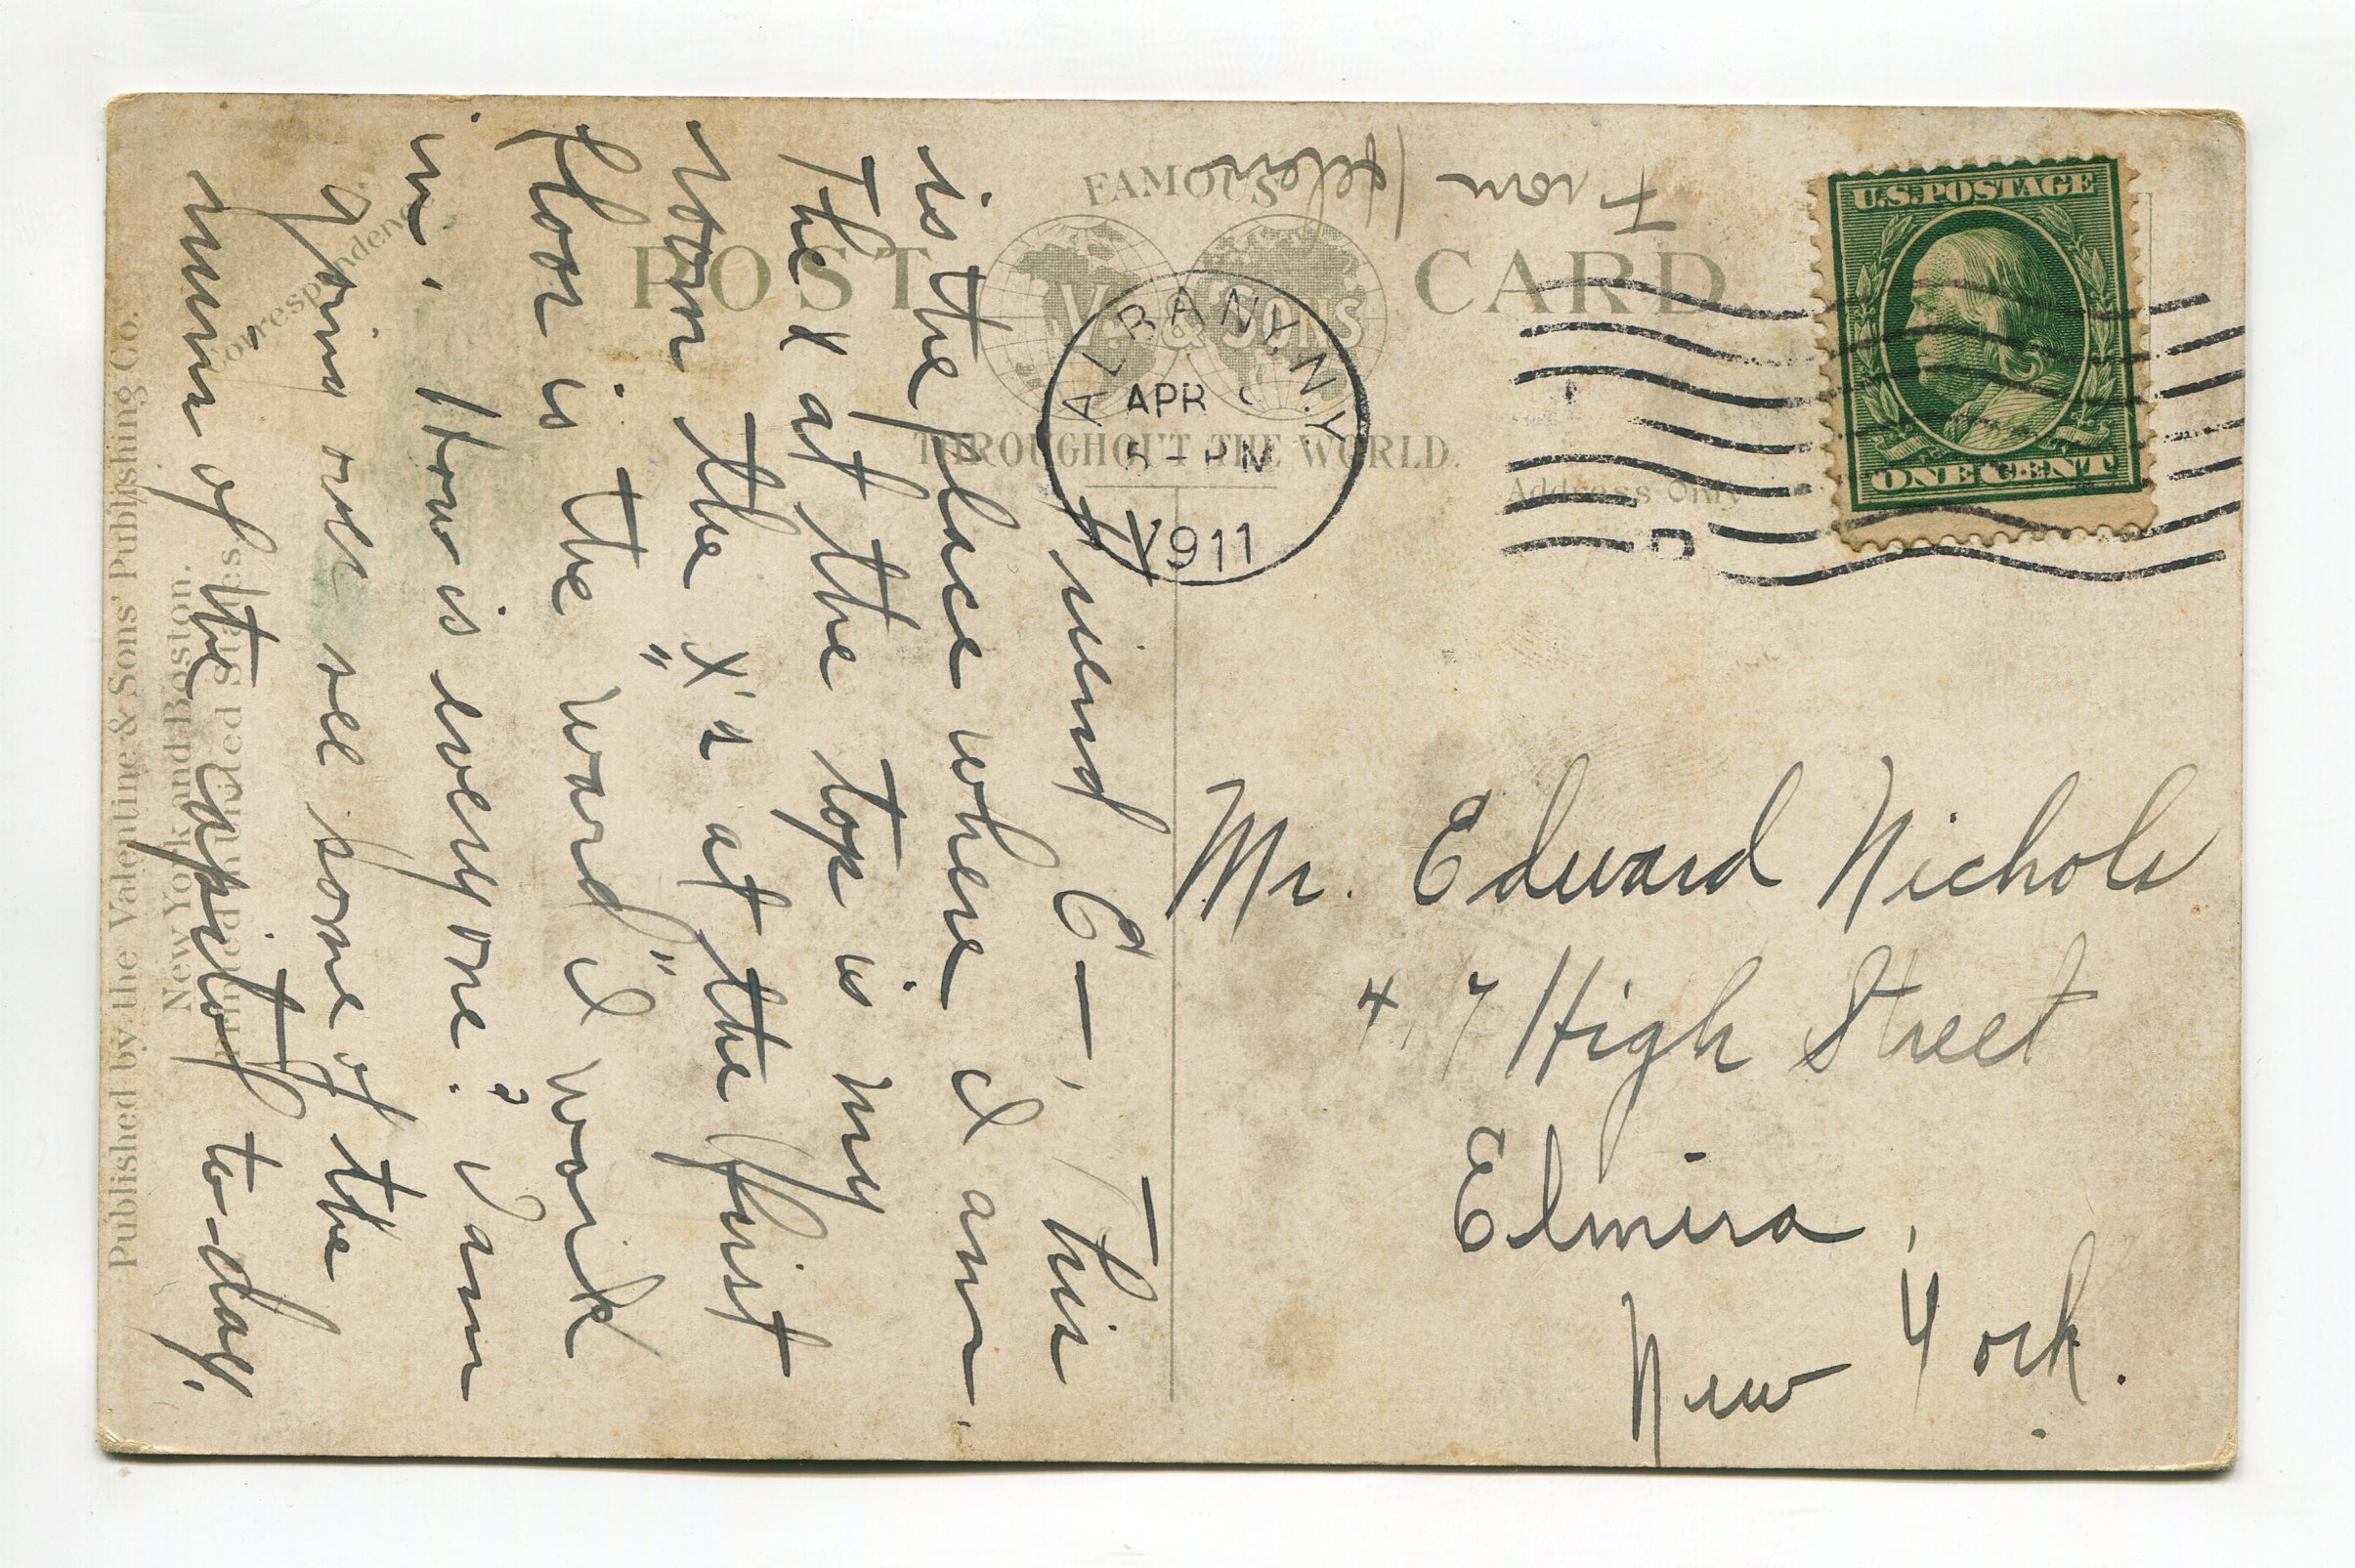 FAMOUS
POST CARD.
V. & SONS
THROUGHOUT THE WORLD.
Correspondence
Address Only
From Helen
U.S. POSTAGE
ONE CENT
ALBANY, N.Y.
APR
5-PM
1911
Friend E—, This
is the place where I am.
The X at the top is my
room the X's at the first
floor is the "ward" I work
in. How is everyone? I am
going over see some of the
ruins of the Capitol to-day.
Mr. Edward Nichols
# 7 High Street
Elmira,
New York.
Published by the Valentine & Sons' Publishing Co.
New York and Boston.
Printed in United States.